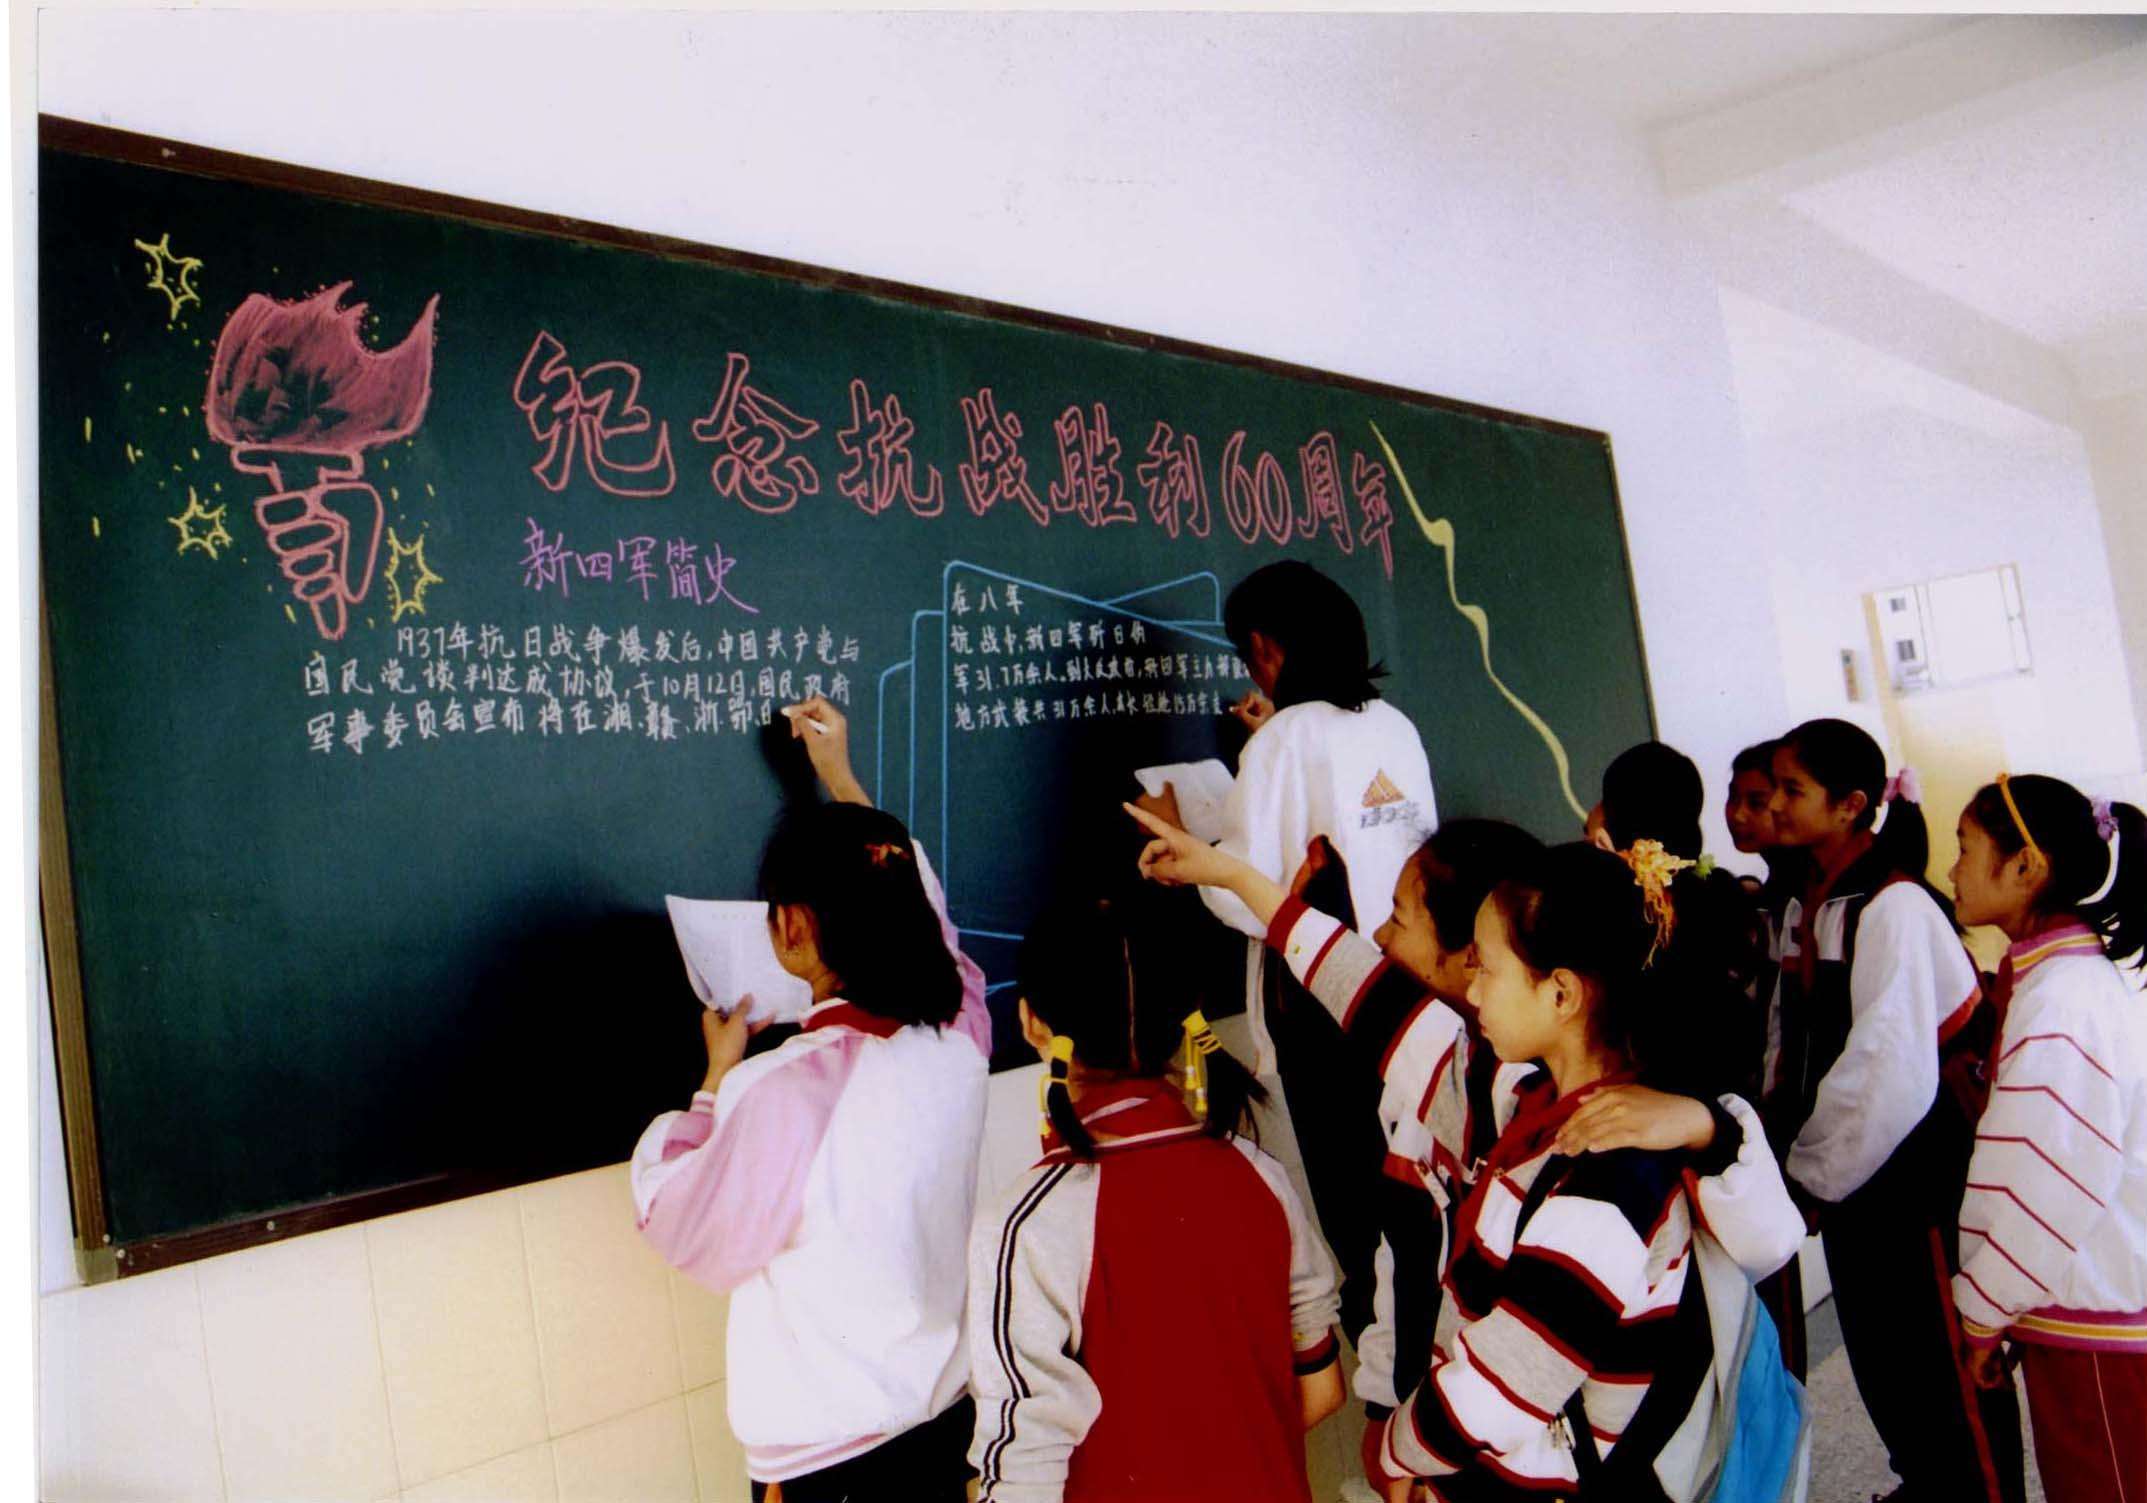 纪念抗战胜利60周年
新四军简史
1937年抗日战争爆发后,中国共产党与
国民党谈判达成协议,于10月12日,国民政府
军事委员会宣布将在湘、赣、浙、鄂、
在八年
抗战中,新四军歼日伪
军31.7万余人。到大反攻前,新四军主力部
地方武装共31万余人,